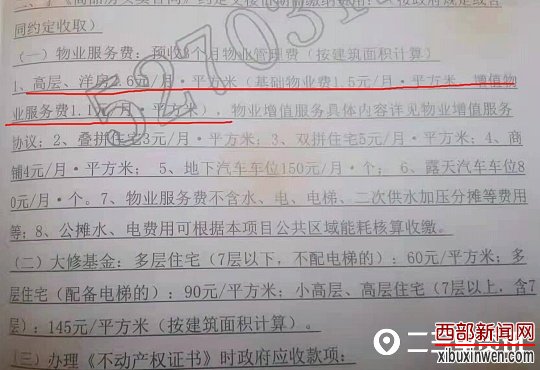 同约定收取）
（一）物业服务费：预收6个月物业管理费（按建筑面积计算）
1、高层、洋房2.6元/月·平方米（基础物业费1.5元/月·平方米，增值物
业服务费1.1元/月·平方米），物业增值服务具体内容详见物业增值服务
协议；2、叠拼住宅3元/月·平方米；3、双拼住宅5元/月·平方米；4、商
铺4元/月·平方米；5、地下汽车车位150元/月·个；6、露天汽车车位8
0元/月·个。7、物业服务费不含水、电、电梯、二次供水加压分摊等费用
等；8、公摊水、电费用可根据本项目公共区域能耗核算收缴。
（二）大修基金：多层住宅（7层以下，不配电梯的）：60元/平方米；多
层住宅（配备电梯的）：90元/平方米；小高层、高层住宅（7层以上，含7
层）：145元/平方米（按建筑面积计算）。
（三）办理《不动产权证书》时政府应收款项：
527031
二三里
西部新闻网
xibuxinwen.com